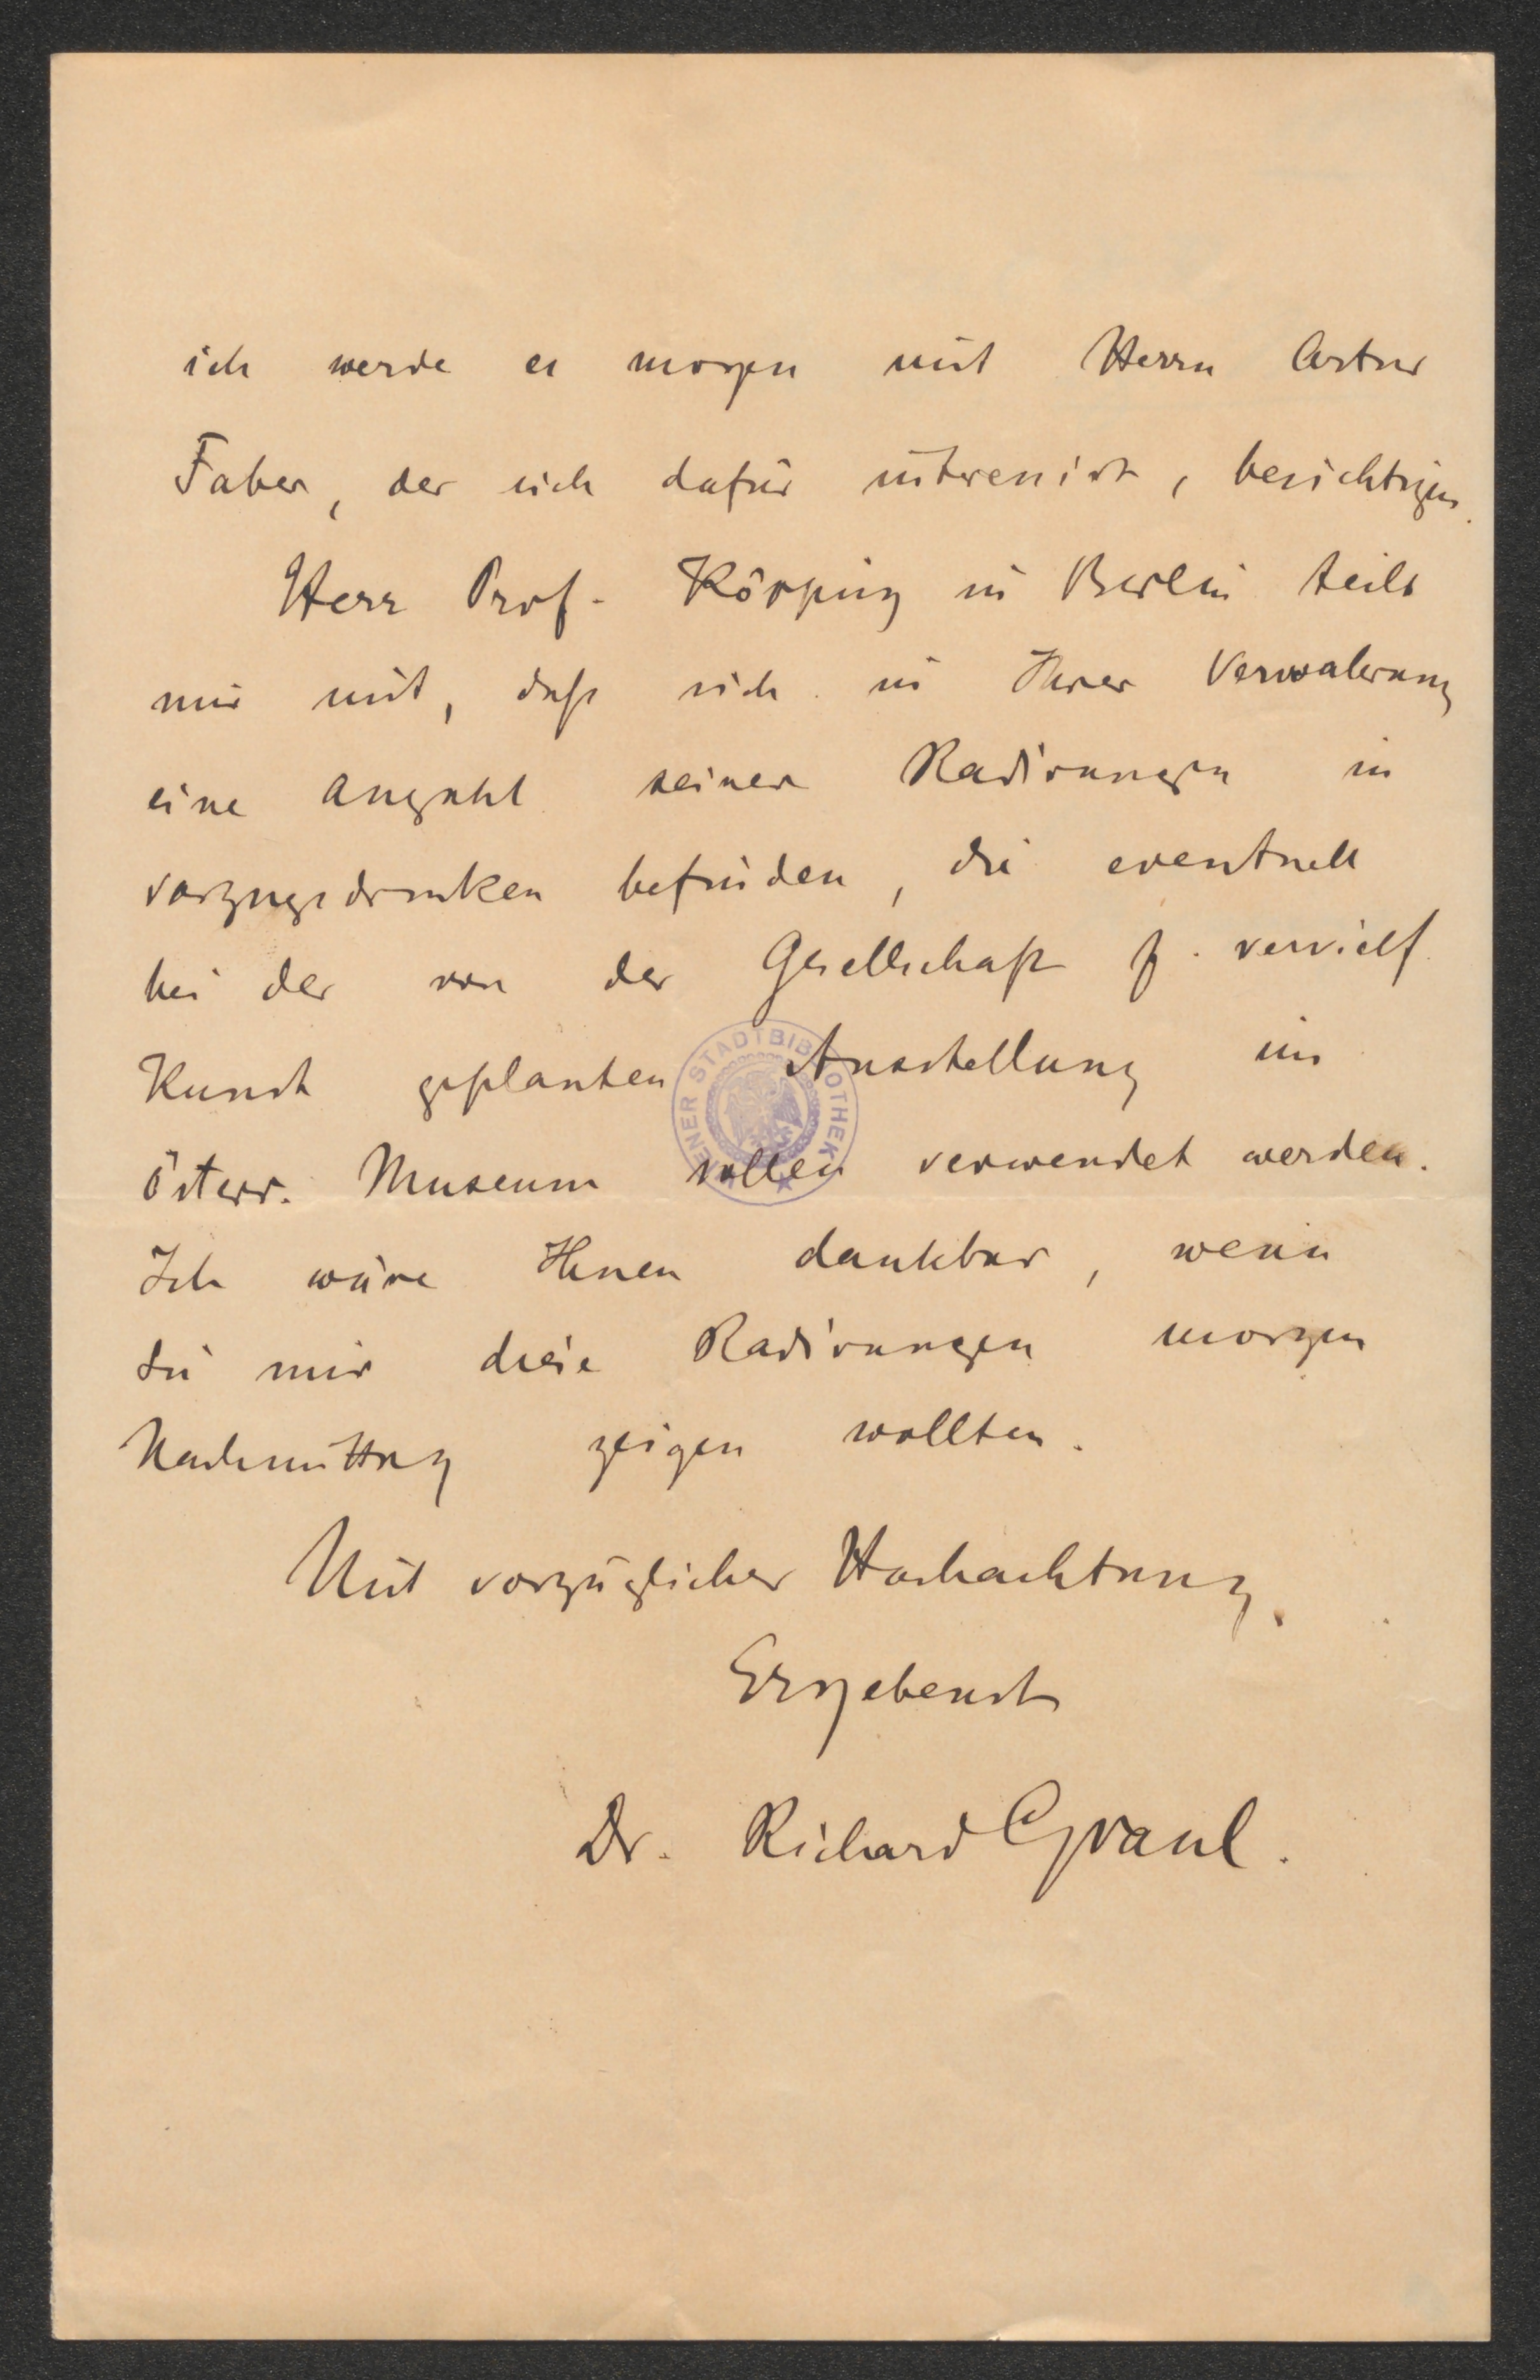 ich werde es morgen mit Herrn Artur
Faber, der sich dafür interessirt, besichtigen.
Herr Prof. Köpping in Berlin teilt
mir mit, daß sich in Ihrer Verwahrung
eine Anzahl seiner Radirungen in
Vorzugsdrucken befinden, die eventuell
bei der von der Gesellschaft f. vervielf.
Kunst geplanten Ausstellung im
Österr. Museum sollen verwendet werden.
Ich wäre Ihnen dankbar, wenn
Sie mir diese Radirungen morgen
Nachmittag zeigen wollten.
Mit vorzüglicher Hochachtung
Ergebenst
Dr. Richard Graul.
WIENER STADTBIBLIOTHEK